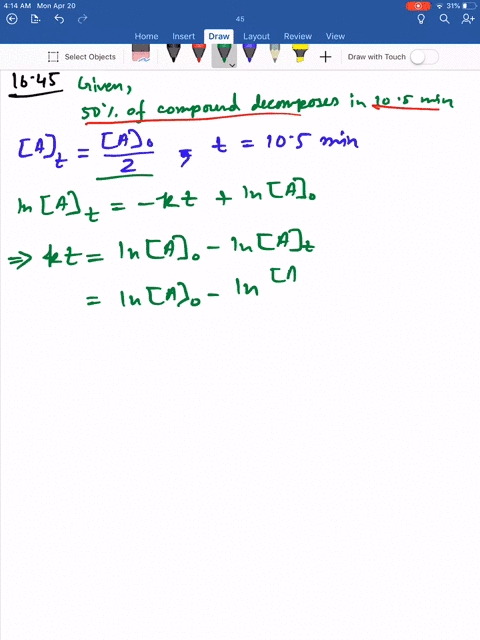 4:14 AM Mon Apr 20
31%
45
Home Insert Draw Layout Review View
Select Objects
Draw with Touch
16.45 Given,
50% of compound decomposes in 10.5 min
[A]t = [A]₀/2 , t = 10.5 min
ln [A]t = -kt + ln [A]₀
⇒ kt = ln [A]₀ - ln [A]t
= ln [A]₀ - ln [A